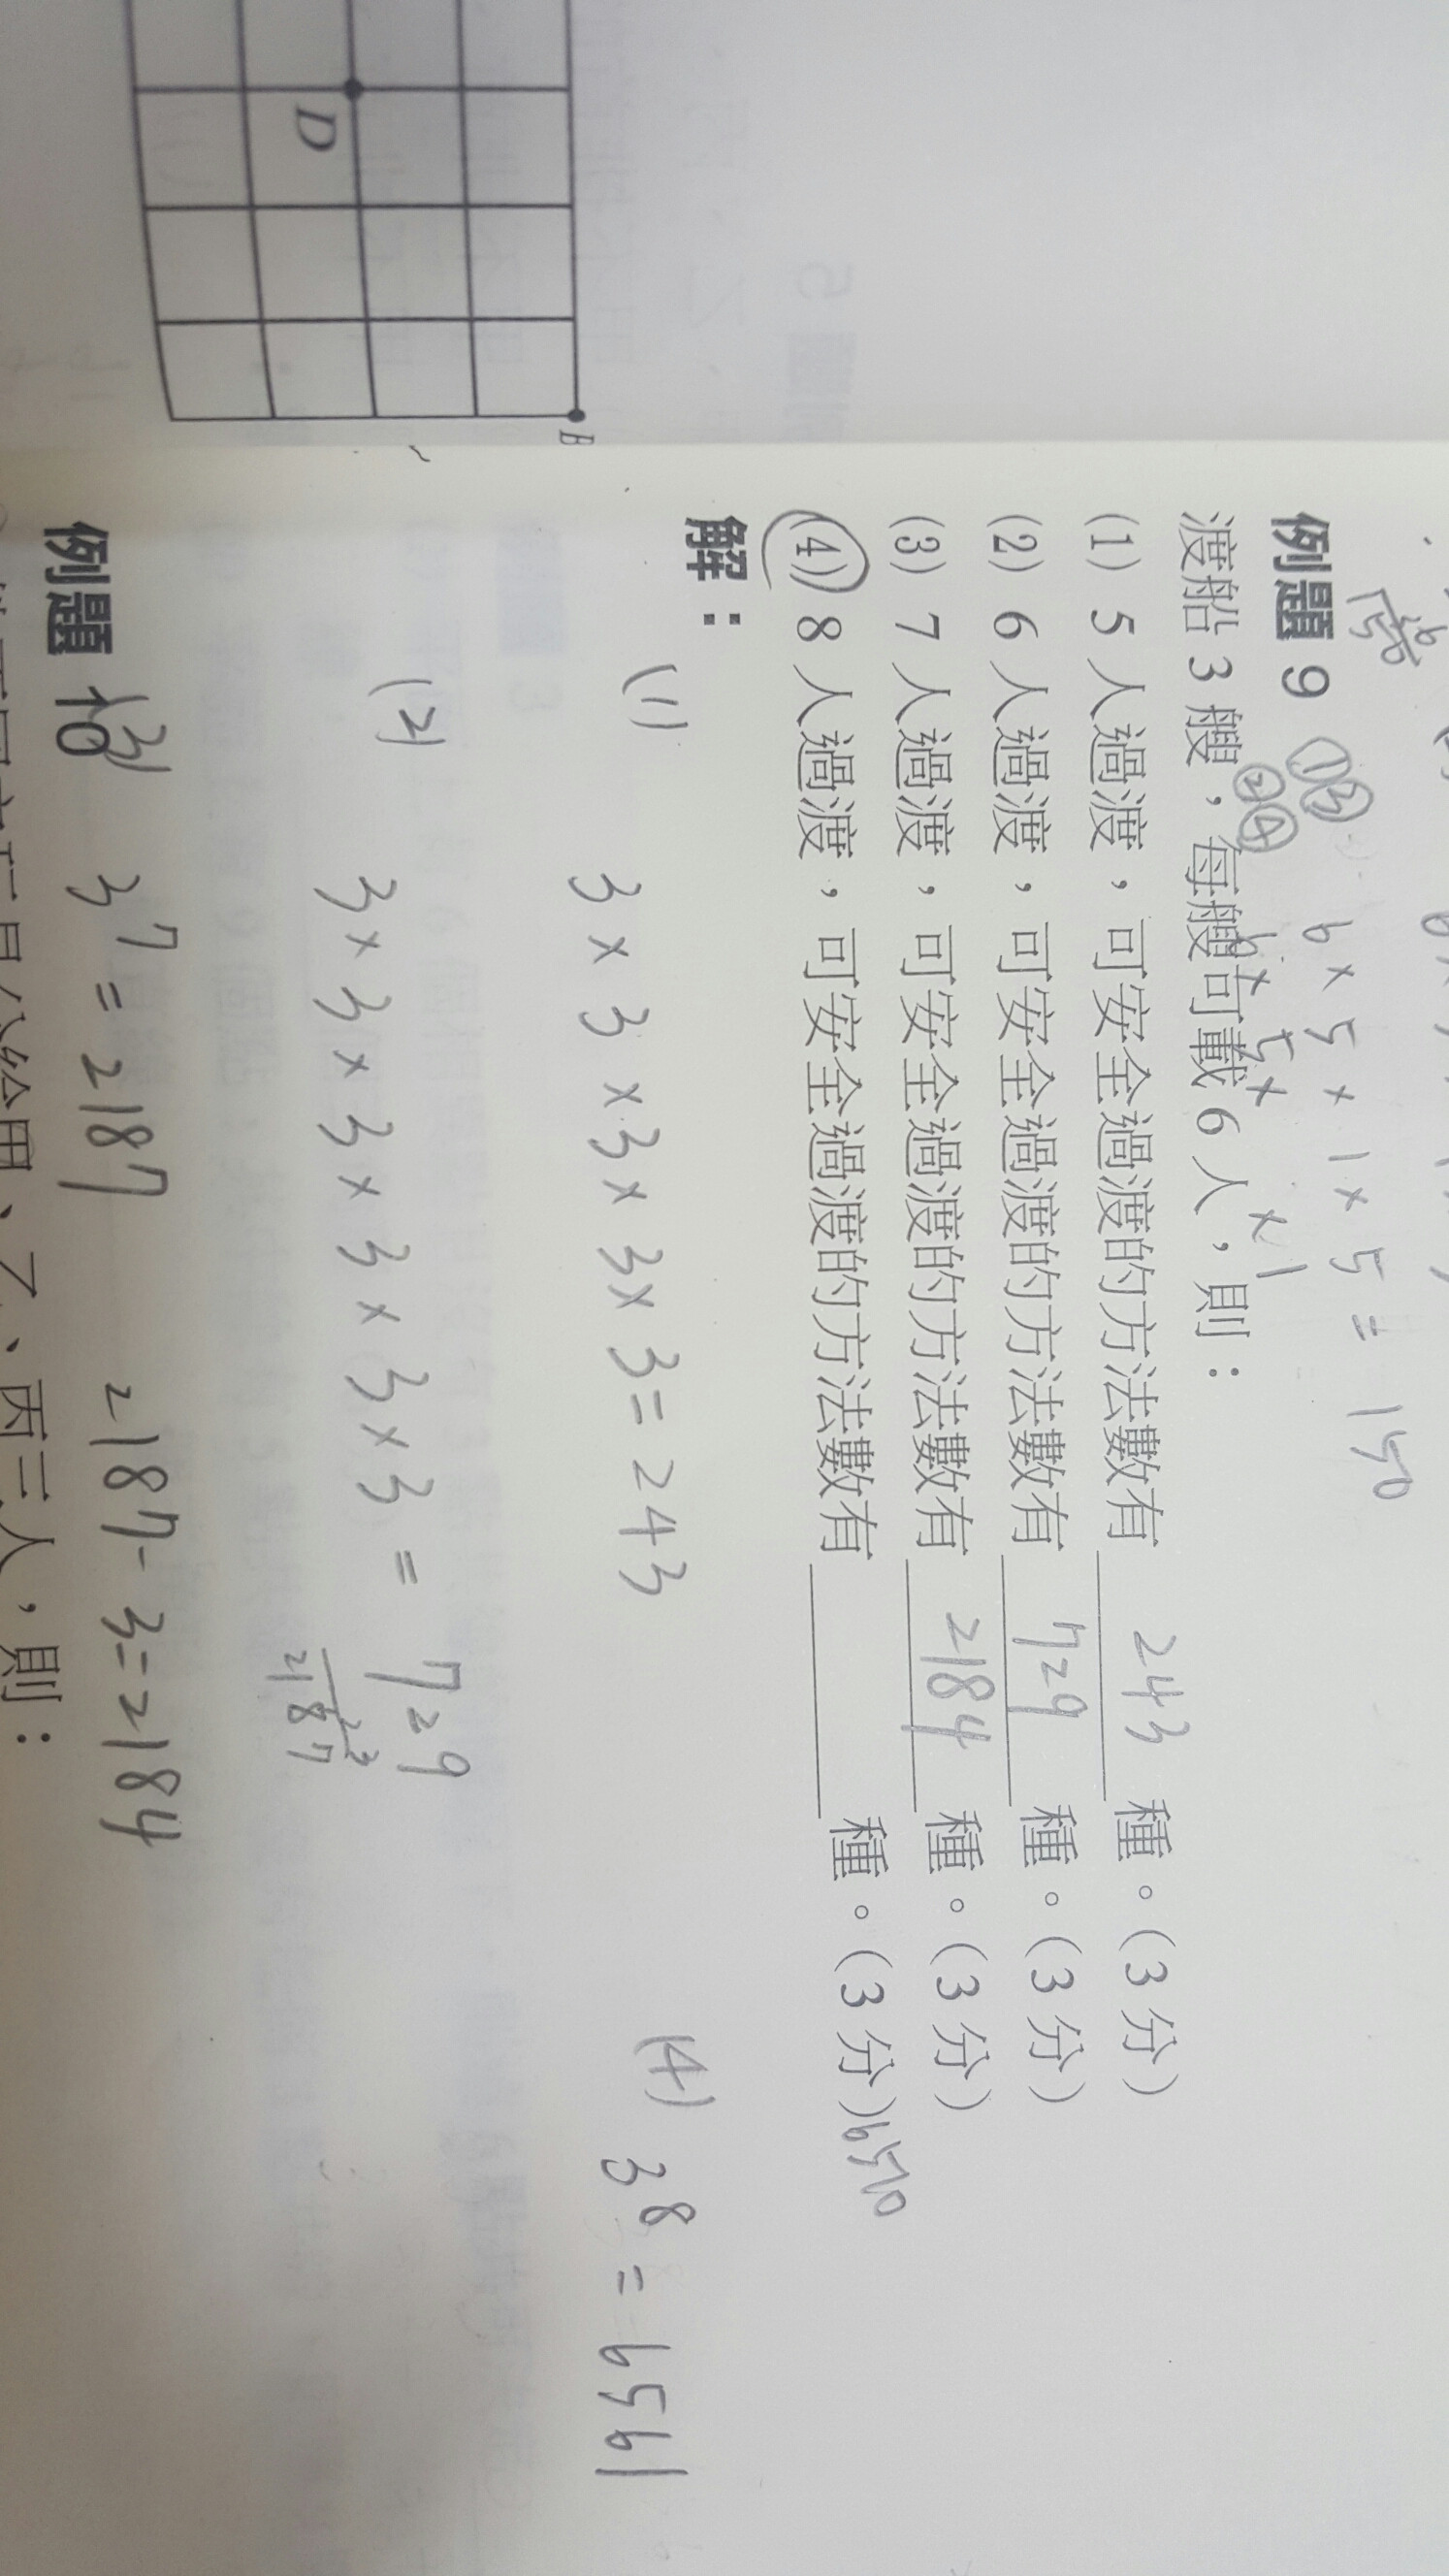 6 × 5 × 1 × 5 = 150
例題 9 ①③
②④ 6 × 5 × × 1
渡船 3 艘，每艘可載 6 人，則：
(1) 5 人過渡，可安全過渡的方法數有 243 種。(3 分)
(2) 6 人過渡，可安全過渡的方法數有 729 種。(3 分)
(3) 7 人過渡，可安全過渡的方法數有 2184 種。(3 分)
(4) 8 人過渡，可安全過渡的方法數有 種。(3 分) 6510
解：
(1) 3 × 3 × 3 × 3 × 3 = 243
(4) 3⁸ = 6561
(2) 3 × 3 × 3 × 3 × 3 × 3 = 729
3
2187
(3) 3⁷ = 2187 2187 - 3 = 2184
例題 10
、乙、丙三人，則：
D
B